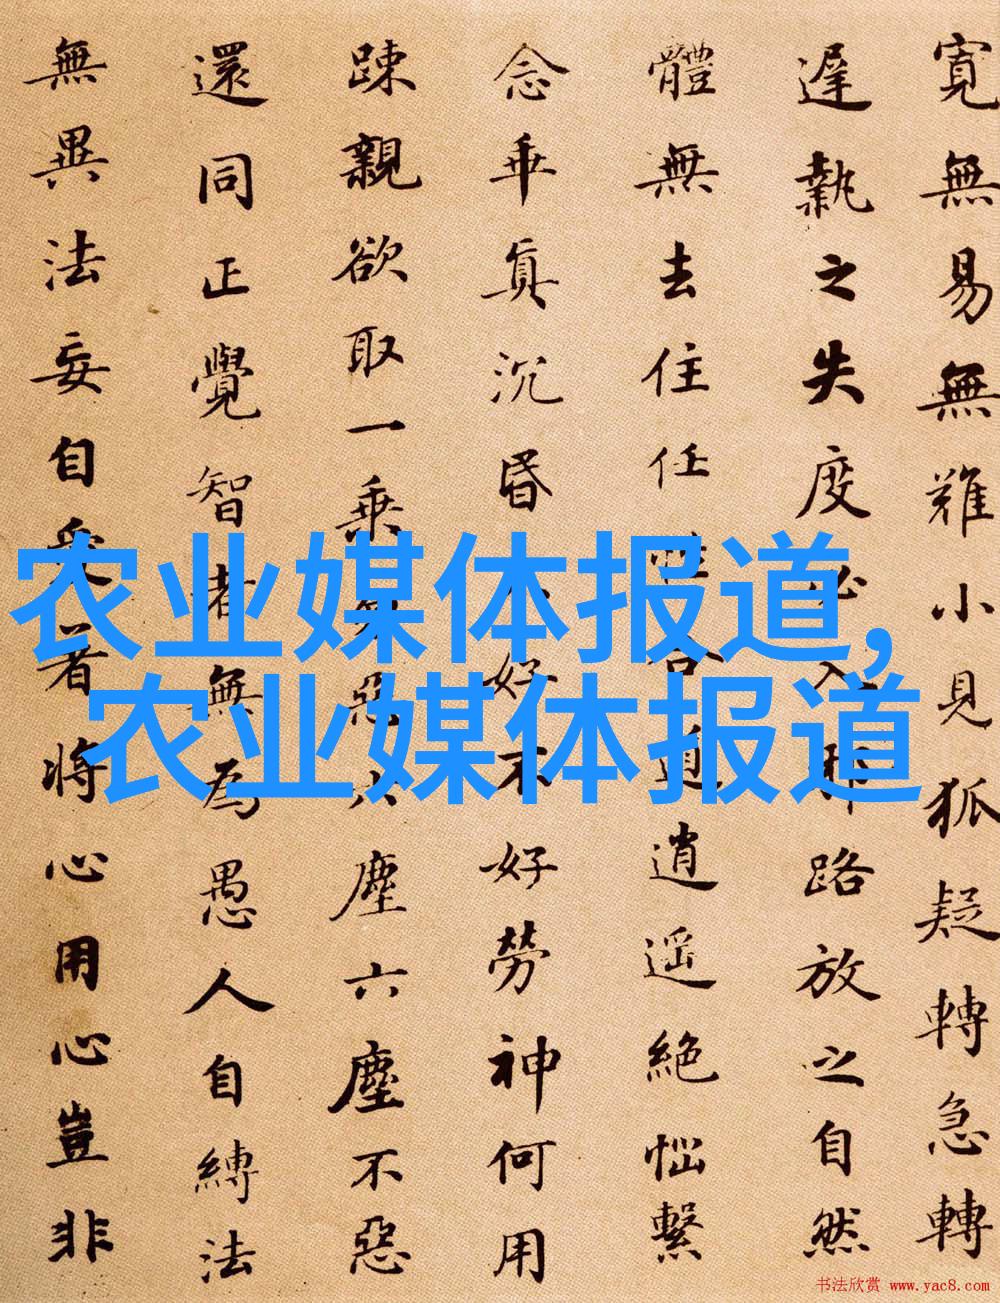 寛無易無難小見狐疑轉急轉
遲執之失度必入邪路放之自然
體無去住任性合道逍遥絶惱繫
念乖真沉昬不好不好勞神何用
踈親欲取一乘勿惡六塵六塵不惡
還同正覺智者無為愚人自縛法
無異法妄自愛著將心用心豈非
农业媒体报道,
农业媒体报道
书法欣赏 www.yac8.com